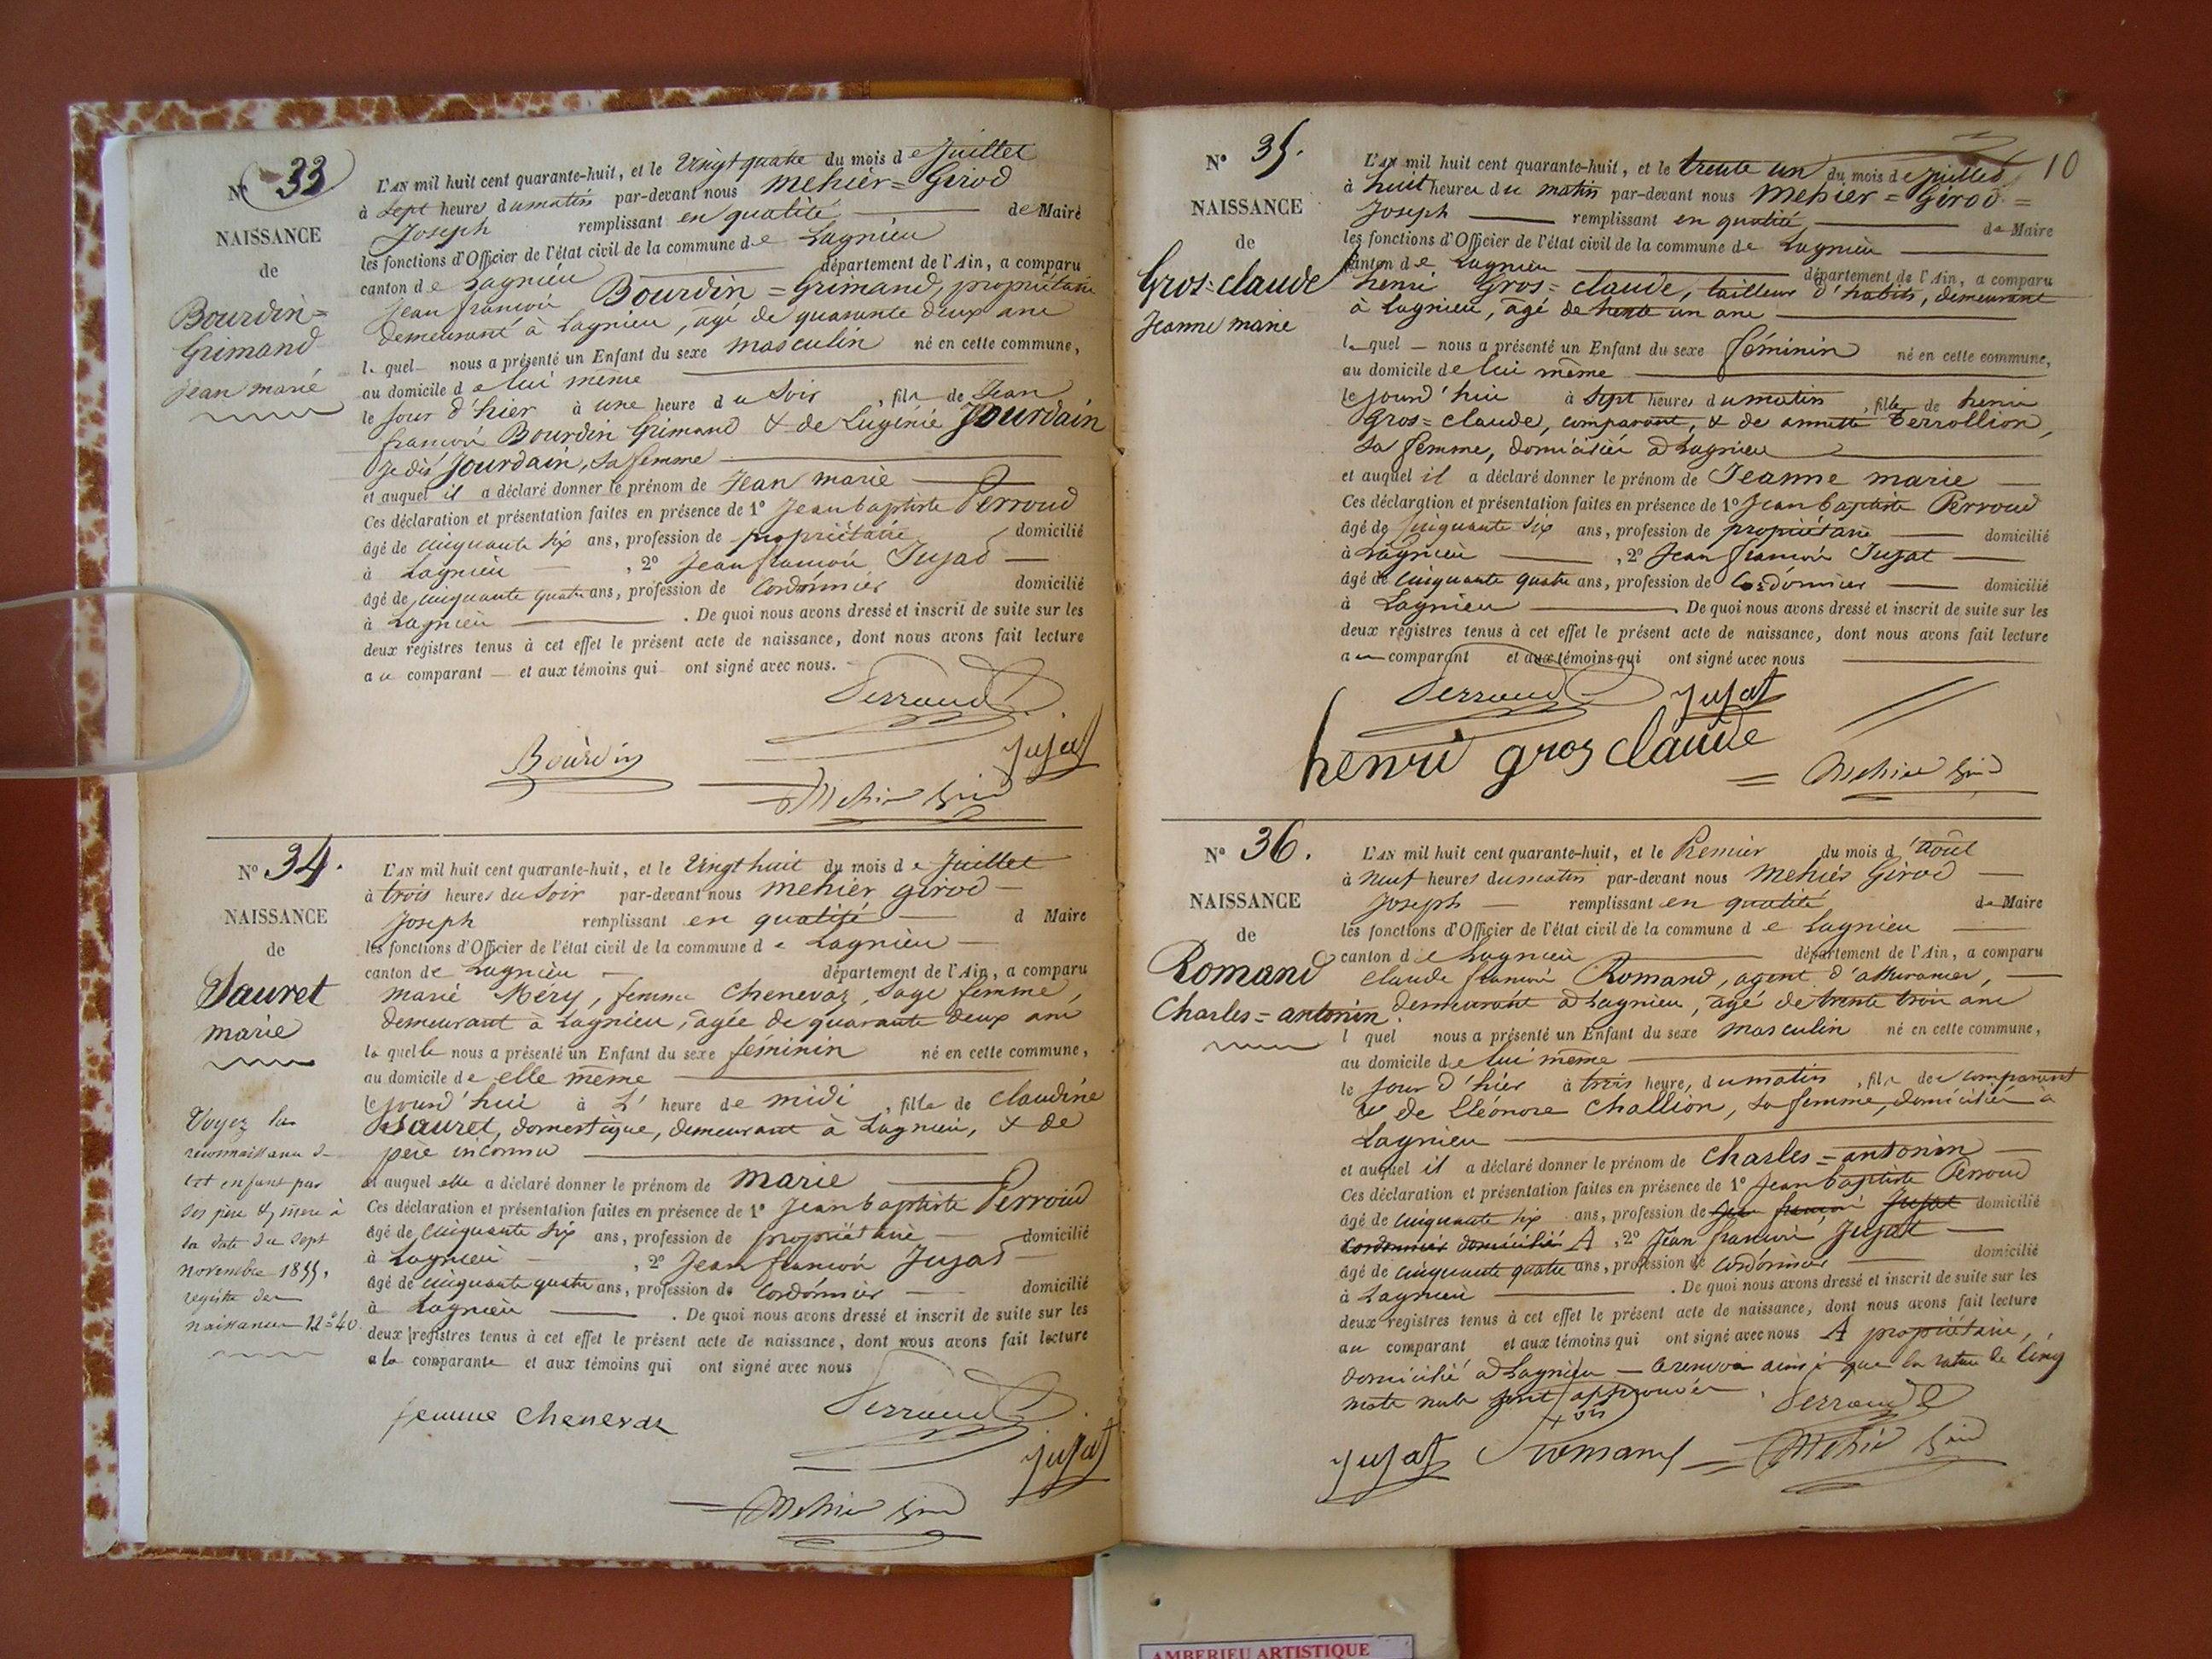 N° 33
NAISSANCE
de
Bourdin=
Grimand
Jean marie
L'AN mil huit cent quarante-huit, et le Vingt quatre du mois de Juillet
à Sept heures du matin par-devant nous Mehier = Girod
Joseph remplissant en qualité de Maire
les fonctions d'Officier de l'état civil de la commune de Lagnieu
canton de Lagnieu département de l'Ain, a comparu
Jean françois Bourdin = Grimand, propriétaire
demeurant à Lagnieu, agé de quarante deux ans
lequel nous a présenté un Enfant du sexe masculin né en cette commune,
au domicile de lui même
le jour d'hier à une heure du soir, fils de Jean
françois Bourdin Grimand & de Eugénie Jourdain
Je dis Jourdain, sa femme
et auquel il a déclaré donner le prénom de Jean marie
Ces déclaration et présentation faites en présence de 1° Jean baptiste Perroud
âgé de cinquante six ans, profession de propriétaire domicilié
à Lagnieu, 2° Jean françois Jujat
âgé de cinquante quatre ans, profession de Cordonnier domicilié
à Lagnieu. De quoi nous avons dressé et inscrit de suite sur les
deux registres tenus à cet effet le présent acte de naissance, dont nous avons fait lecture
au comparant et aux témoins qui ont signé avec nous.
Perroud
Bourdin
Jujat
Mehier Girod
N° 34.
NAISSANCE
de
Sauret
marie
Voyez la
reconnaissance de
cet enfant par
ses père & mère à
la date du sept
novembre 1855,
registre des
naissances N° 40.
L'AN mil huit cent quarante-huit, et le Vingt huit du mois de Juillet
à trois heures du soir par-devant nous Mehier girod
Joseph remplissant en qualité d Maire
les fonctions d'Officier de l'état civil de la commune de Lagnieu
canton de Lagnieu département de l'Ain, a comparu
marie Méry, femme Chenevaz, sage femme,
demeurant à Lagnieu, agée de quarante deux ans
laquelle nous a présenté un Enfant du sexe féminin né en cette commune,
au domicile de elle même
le jourd'hui à L' heure de midi, fille de Claudine
Sauret, domestique, demeurant à Lagnieu, & de
père inconnu
et auquel elle a déclaré donner le prénom de marie
Ces déclaration et présentation faites en présence de 1° Jean baptiste Perroud
âgé de cinquante six ans, profession de propriétaire domicilié
à Lagnieu, 2° Jean françois Jujat
âgé de cinquante quatre ans, profession de Cordonnier domicilié
à Lagnieu. De quoi nous avons dressé et inscrit de suite sur les
deux registres tenus à cet effet le présent acte de naissance, dont nous avons fait lecture
a la comparante et aux témoins qui ont signé avec nous
femme Chenevaz
Perroud
Jujat
Mehier Girod
10
N° 35.
NAISSANCE
de
Gros=claude
Jeanne marie
L'AN mil huit cent quarante-huit, et le trente un du mois de Juillet
à huit heures du matin par-devant nous Mehier = Girod =
Joseph remplissant en qualité de Maire
les fonctions d'Officier de l'état civil de la commune de Lagnieu
canton de Lagnieu département de l'Ain, a comparu
henri Gros=claude, tailleur d'habits, demeurant
à Lagnieu, âgé de trente un ans
lequel nous a présenté un Enfant du sexe féminin né en cette commune,
au domicile de lui même
le jourd'hui à sept heures du matin, fille de henri
Gros=claude, comparant, & de annette Terrollion,
sa femme, domiciliés à Lagnieu
et auquel il a déclaré donner le prénom de Jeanne marie
Ces déclaration et présentation faites en présence de 1° Jean baptiste Perroud
âgé de cinquante six ans, profession de propriétaire domicilié
à Lagnieu, 2° Jean françois Jujat
âgé de cinquante quatre ans, profession de Cordonnier domicilié
à Lagnieu. De quoi nous avons dressé et inscrit de suite sur les
deux registres tenus à cet effet le présent acte de naissance, dont nous avons fait lecture
au comparant et aux témoins qui ont signé avec nous
Perroud Jujat
henri gros claude
Mehier Girod
N° 36.
NAISSANCE
de
Romand
Charles=antonin
L'AN mil huit cent quarante-huit, et le Premier du mois d'août
à Neuf heures du matin par-devant nous Mehier Girod
Joseph remplissant en qualité de Maire
les fonctions d'Officier de l'état civil de la commune de Lagnieu
canton de Lagnieu département de l'Ain, a comparu
Claude françois Romand, agent d'assurances,
demeurant à Lagnieu, âgé de trente trois ans
l quel nous a présenté un Enfant du sexe masculin né en cette commune,
au domicile de lui même
le jour d'hier à trois heures du matin, fils du comparant
& de Eléonore Challion, sa femme, domiciliés à
Lagnieu
et auquel il a déclaré donner le prénom de Charles=antonin
Ces déclaration et présentation faites en présence de 1° Jean baptiste Perroud
âgé de cinquante six ans, profession de Jean françois Jujat domicilié
cordonnier domicilié A, 2° Jean françois Jujat
âgé de cinquante quatre ans, profession de Cordonnier domicilié
à Lagnieu. De quoi nous avons dressé et inscrit de suite sur les
deux registres tenus à cet effet le présent acte de naissance, dont nous avons fait lecture
au comparant et aux témoins qui ont signé avec nous A propriétaire,
domicilié à Lagnieu le renvoi ainsi que la rature de cinq
mots nuls sont approuvés
Perroud
Jujat Romand Mehier Girod
AMBERIEU ARTISTIQUE